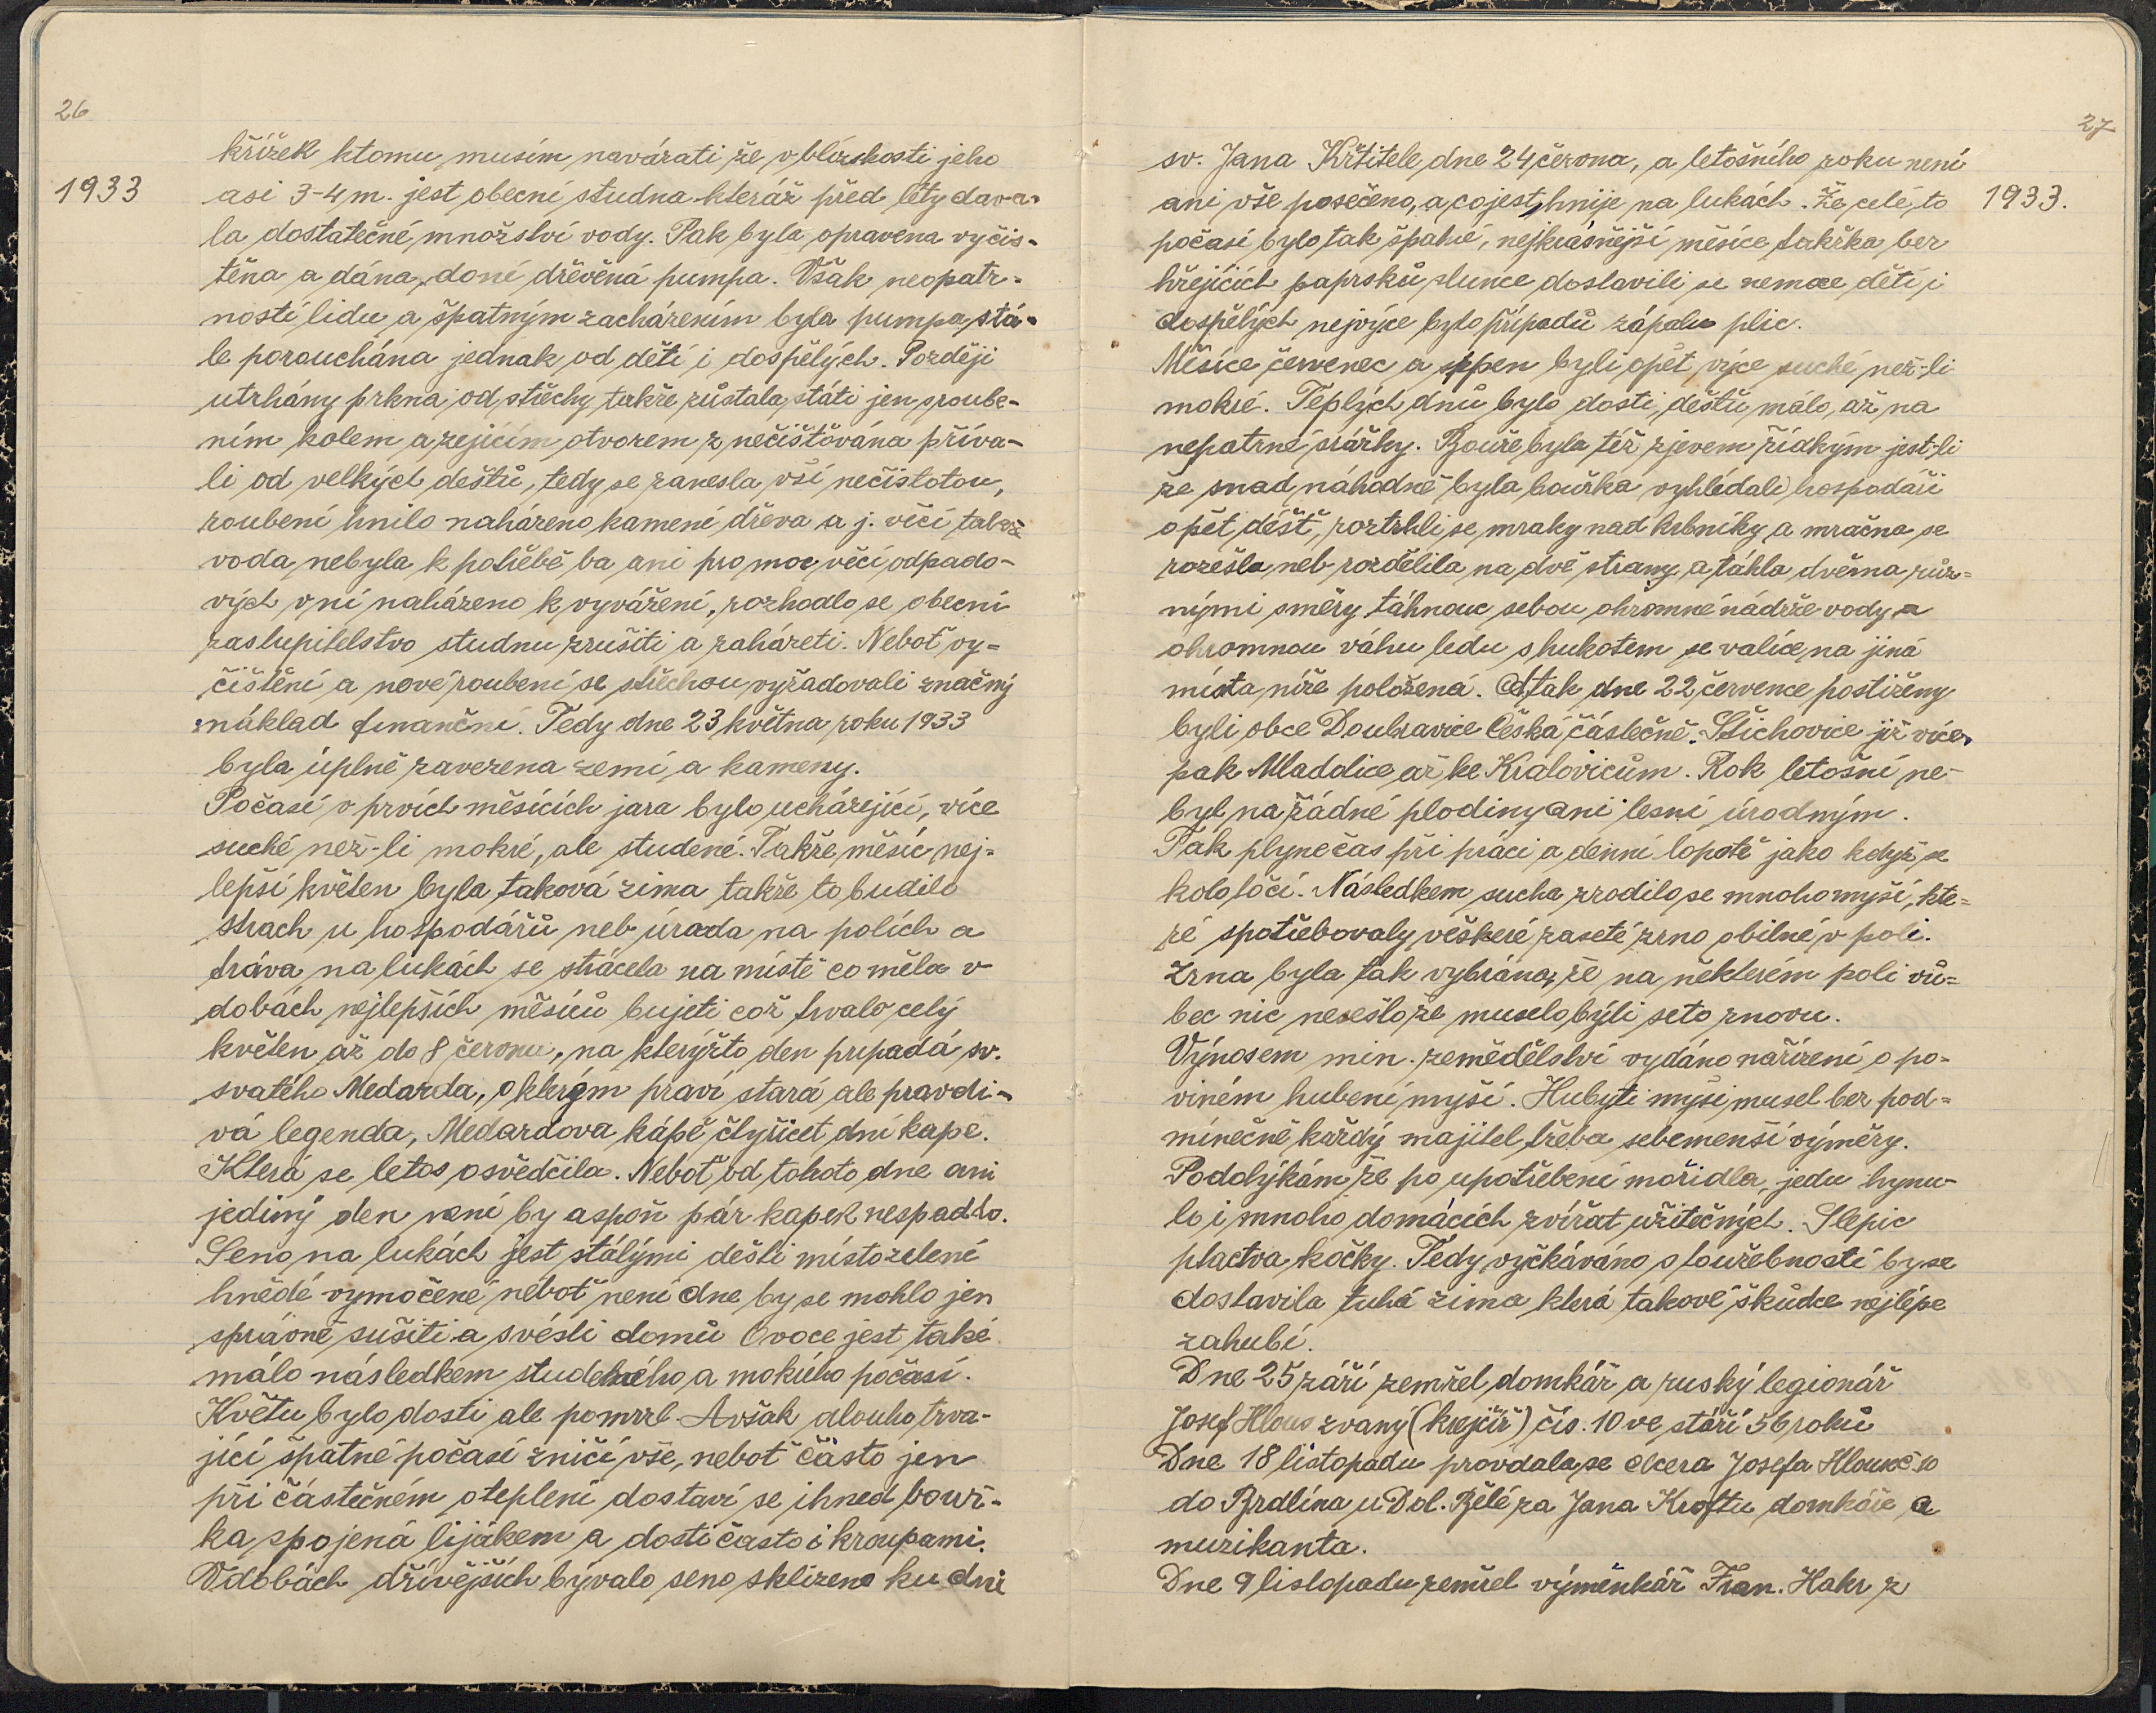 26
1933
křížek ktomu musím navázati že v blízskosti jeho
asi 3-4 m. jest obecní studna kteráž před léty dava-
la dostatečné množství vody. Pak byla opravena vyčis-
těna a dána doní dřevěná pumpa. Však neopatr-
ností lidu a špatným zacházením byla pumpa stá-
le porouchána jednak od dětí i dospělých. Později
utrhány prkna od střechy takže zůstala státi jen sroube-
ním kolem a zejícím otvorem znečišťována příva-
li od velkých deštů, tedy se zanesla vší nečistotou,
roubení hnilo naházeno kamení dřeva a j. věcí takže
voda nebyla k potřebě ba ani pro moc věcí odpado-
vých v ní naházeno k vyvážení, rozhodlo se obecní
zastupitelstvo studnu zrušiti a zaházeti. Neboť vy=
čištění a nové roubení se střechou vyžadovali značný
náklad finanční. Tedy dne 23 května roku 1933
byla úplně zavezena zemí a kameny.
Počasí v prvích měsících jara bylo ucházející, více
suché než-li mokré, ale studené. Takže měsíc nej=
lepší květen byla taková zima takže to budilo
strach u hospodářů neb úrada na polích a
tráva na lukách se strácela na místě co měla v
dobách nejlepších měsíců bujeti což trvalo celý
květen až do 8 červnu, na kterýžto den pripadá sv.
svatého Medarda, o kterým praví stará ale pravdi-
vá legenda, Medardova kápě čtyřicet dní kape.
Která se letos osvědčila. Neboť od tohoto dne ani
jediný den není by aspoň pár kapek nespadlo.
Seno na lukách jest stálými dešti místo zelené
hnědé vymočené neboť není dne by se mohlo jen
správně sušiti a svésti domů Ovoce jest také
málo následkem studeného a mokrého počasí.
Květu bylo dosti ale pomrzl. Avšak dlouho trva-
jící špatné počasí zničí vše, neboť často jen
při částečném oteplení dostaví se ihned bouř-
ka spojená lijákem a dosti často i kroupami.
V dobách dřívějších bývalo seno sklizeno ku dni
27
1933.
sv. Jana Křtitele dne 24 června, a letošního roku není
ani vše posečeno, a co jest, hnije na lukách. Že celé to
počasí bylo tak špatné, nejkrásnější měsíce takřka bez
hřejících paprsků slunce dostavili se nemoce dětí i
dospělých nejvýce bylo případů zápalu plic.
Měsíce červenec a srpen byli opět výce suché než-li
mokré. Teplých dnů bylo dosti, deštů málo, až na
nepatrné srážky. Bouře byla též zjevem řídkým jest-li
že snad náhodně byla bouřka vyhlédali hospodáři
opět déšť, roztrhli se mraky nad hrbníky a mračna se
rozešla neb rozdělila na dvě strany a táhla dvěma růz=
nými směry táhnouc sebou ohromné nádrže vody a
ohromnou váhu ledu s hukotem se valíce na jiná
místa níže položená. A tak dne 22 července postiženy
byli obce Doubravice Česká částečně. Střichovice již více
pak Mladotice až ke Kralovicům. Rok letošní ne-
byl na žádné plodiny ani lesní úrodným.
Tak plyne čas při práci a denní lopotě jako když se
kolo točí. Následkem sucha zrodilo se mnoho myší, kte=
ré spotřebovaly veškeré zaseté zrno obilné v poli.
Zrna byla tak vybrána, že na některém poli vů=
bec nic nesešlo že muselo býti seto znovu.
Výnosem min. zemědělství vydáno nařízení o po-
viném hubení myší. Hubyti myši musel bez pod=
mínečně každý majitel třeba sebemenší výměry.
Podotýkám že po upotřebení mořidla, jedu hynu-
lo i mnoho domácích zvířat užitečných. Slepic
ptactva kočky. Tedy vyčkáváno s toužebností by se
dostavila tuhá zima která takové škůdce nejlépe
zahubí.
Dne 25 září zemřel domkář a ruský legionář
Josef Hlous zvaný (krejčíř) čís. 10 ve stáří 56 roků
Dne 18 listopadu provdala se dcera Josefa Hlouse č. 10
do Brdlína u Dol. Bělé za Jana Kroftu domkáře a
muzikanta.
Dne 9 listopadu zemřel výměnkář Fran. Hahr z